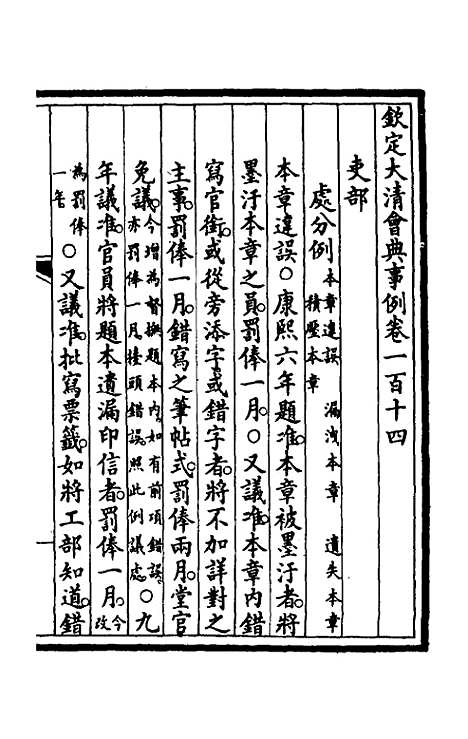 欽定大清會典事例卷一百十四
吏部
處分例 本章違誤 漏洩本章 遺失本章 積壓本章
本章違誤○康熙六年題准本章被墨汙者將
墨汙本章之員罰俸一月○又議准本章內錯
寫官銜或從旁添字或錯字者將不加詳對之
主事罰俸一月錯寫之筆帖式罰俸兩月堂官
免議今增為督撫題本內如有前項錯誤亦罰俸一月擡頭錯誤照此例議處○九
年議准官員將題本遺漏印信者罰俸一月今改
為罰俸一年○又議准批寫票籤如將工部知道錯